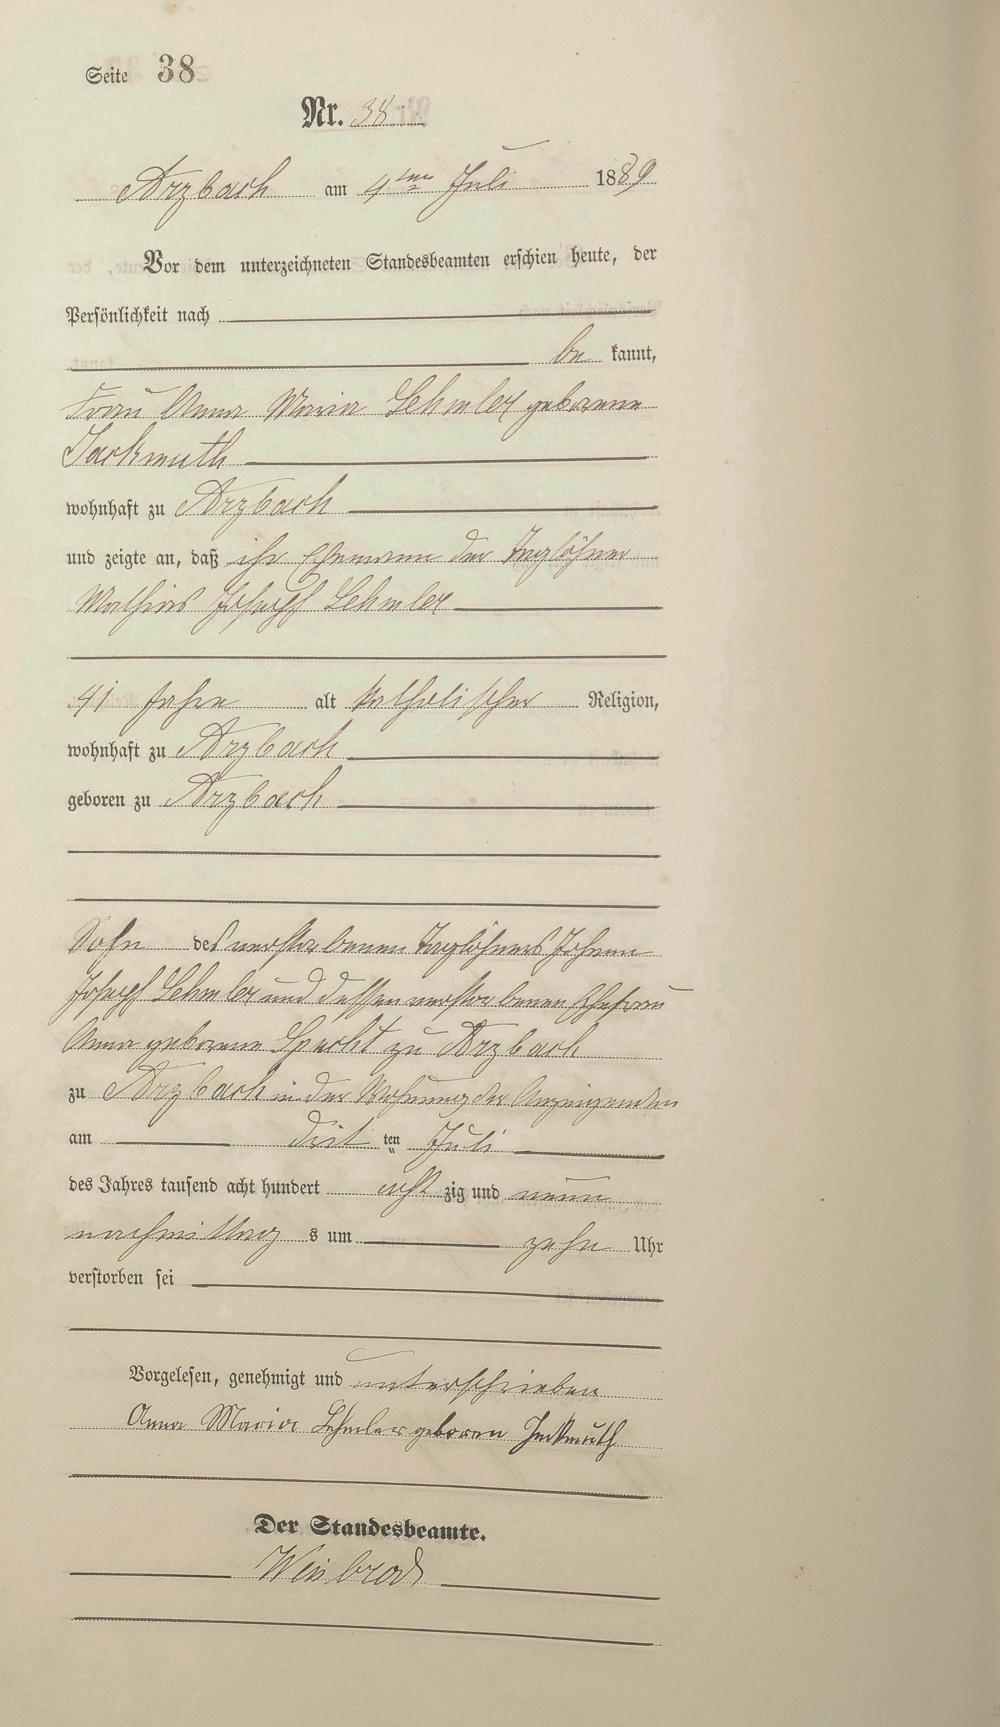 Seite 38
Nr. 38
Arzbach am 4ten Juli 1889
Vor dem unterzeichneten Standesbeamten erschien heute, der
Persönlichkeit nach
be kannt,
Frau Anna Maria Lehmler geborene
Jackmuth
wohnhaft zu Arzbach
und zeigte an, daß ihr Ehemann der Taglöhner
Mathias Joseph Lehmler
41 Jahre alt katholischer Religion,
wohnhaft zu Arzbach
geboren zu Arzbach
Sohn des verstorbenen Taglöhners Johann
Joseph Lehmler und dessen verstorbenen Ehefrau
Anna geborene Specht zu Arzbach
zu Arzbach in der Wohnung der Anzeigenden
am ten Juli
des Jahres tausend acht hundert acht zig und neun
nachmittag s um zehn Uhr
verstorben sei
Vorgelesen, genehmigt und unterschrieben
Anna Maria Lehmler geboren Jackmuth
Der Standesbeamte.
Weisbrod